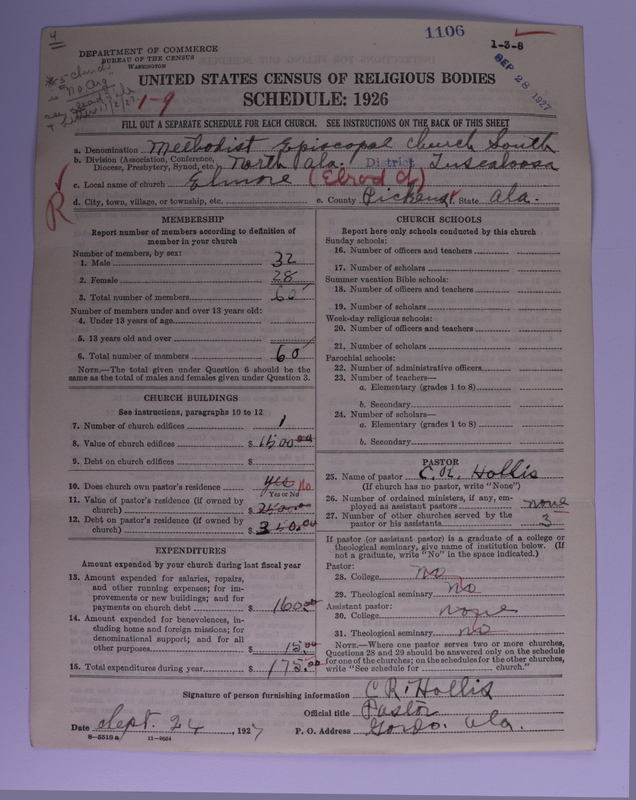 4
1106
1-3-8
SEP 28 1927
DEPARTMENT OF COMMERCE
BUREAU OF THE CENSUS
WASHINGTON
"No Org."
1-9
UNITED STATES CENSUS OF RELIGIOUS BODIES
SCHEDULE: 1926
FILL OUT A SEPARATE SCHEDULE FOR EACH CHURCH. SEE INSTRUCTIONS ON THE BACK OF THIS SHEET
a. Denomination Methodist Episcopal Church South
b. Division (Association, Conference, Diocese, Presbytery, Synod, etc.) North Ala. District Tuscaloosa
c. Local name of church Elmore (Elrod
R
d. City, town, village, or township, etc. e. County Pickens State Ala.
MEMBERSHIP
Report number of members according to definition of
member in your church
Number of members, by sex:
1. Male 32
2. Female 28
3. Total number of members 60
Number of members under and over 13 years old:
4. Under 13 years of age
5. 13 years old and over
6. Total number of members 60
NOTE.—The total given under Question 6 should be the
same as the total of males and females given under Question 3.
CHURCH BUILDINGS
See instructions, paragraphs 10 to 12
7. Number of church edifices 1
8. Value of church edifices $ 1500.00
9. Debt on church edifices $
10. Does church own pastor's residence yes No
Yes or No
11. Value of pastor's residence (if owned by
church) $
12. Debt on pastor's residence (if owned by
church) $
EXPENDITURES
Amount expended by your church during last fiscal year
13. Amount expended for salaries, repairs,
and other running expenses; for im-
provements or new buildings; and for
payments on church debt $ 160.00
14. Amount expended for benevolences, in-
cluding home and foreign missions; for
denominational support; and for all
other purposes $ 15.00
15. Total expenditures during year $ 175.00
CHURCH SCHOOLS
Report here only schools conducted by this church
Sunday schools:
16. Number of officers and teachers
17. Number of scholars
Summer vacation Bible schools:
18. Number of officers and teachers
19. Number of scholars
Week-day religious schools:
20. Number of officers and teachers
21. Number of scholars
Parochial schools:
22. Number of administrative officers
23. Number of teachers—
a. Elementary (grades 1 to 8)
b. Secondary
24. Number of scholars—
a. Elementary (grades 1 to 8)
b. Secondary
PASTOR
25. Name of pastor C. R. Hollis
(If church has no pastor, write "None")
26. Number of ordained ministers, if any, em-
ployed as assistant pastors none
27. Number of other churches served by the
pastor or his assistants 3
If pastor (or assistant pastor) is a graduate of a college or
theological seminary, give name of institution below. (If
not a graduate, write "No" in the space indicated.)
Pastor:
28. College No
29. Theological seminary No
Assistant pastor:
30. College none
31. Theological seminary no
NOTE.—Where one pastor serves two or more churches,
Questions 28 and 29 should be answered only on the schedule
for one of the churches; on the schedules for the other churches,
write "See schedule for church."
Signature of person furnishing information C R. Hollis
Official title Pastor
Date Sept. 24, 1927 P. O. Address Gordo. Ala.
8-5519a 11-9664